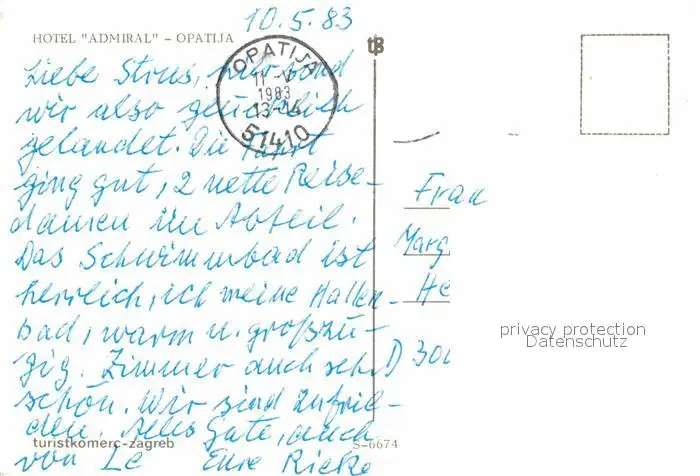 10.5.83
HOTEL "ADMIRAL" – OPATIJA
OPATIJA
11-V
1983
13-14
51410
Liebe Strus, hier sind
wir also glücklich
gelandet. Die Fahrt
ging gut, 2 nette Reise-
damen im Abteil.
Das Schwimmbad ist
herrlich, ich meine Hallen-
bad, warm u. großzü-
gig. Zimmer auch sehr
schön. Wir sind zufrie-
den. Alles Gute, auch
von Le Eure Rieke
turistkomerc-zagreb
S-6674
Frau
Marg
He
D 300
privacy protection
Datenschutz